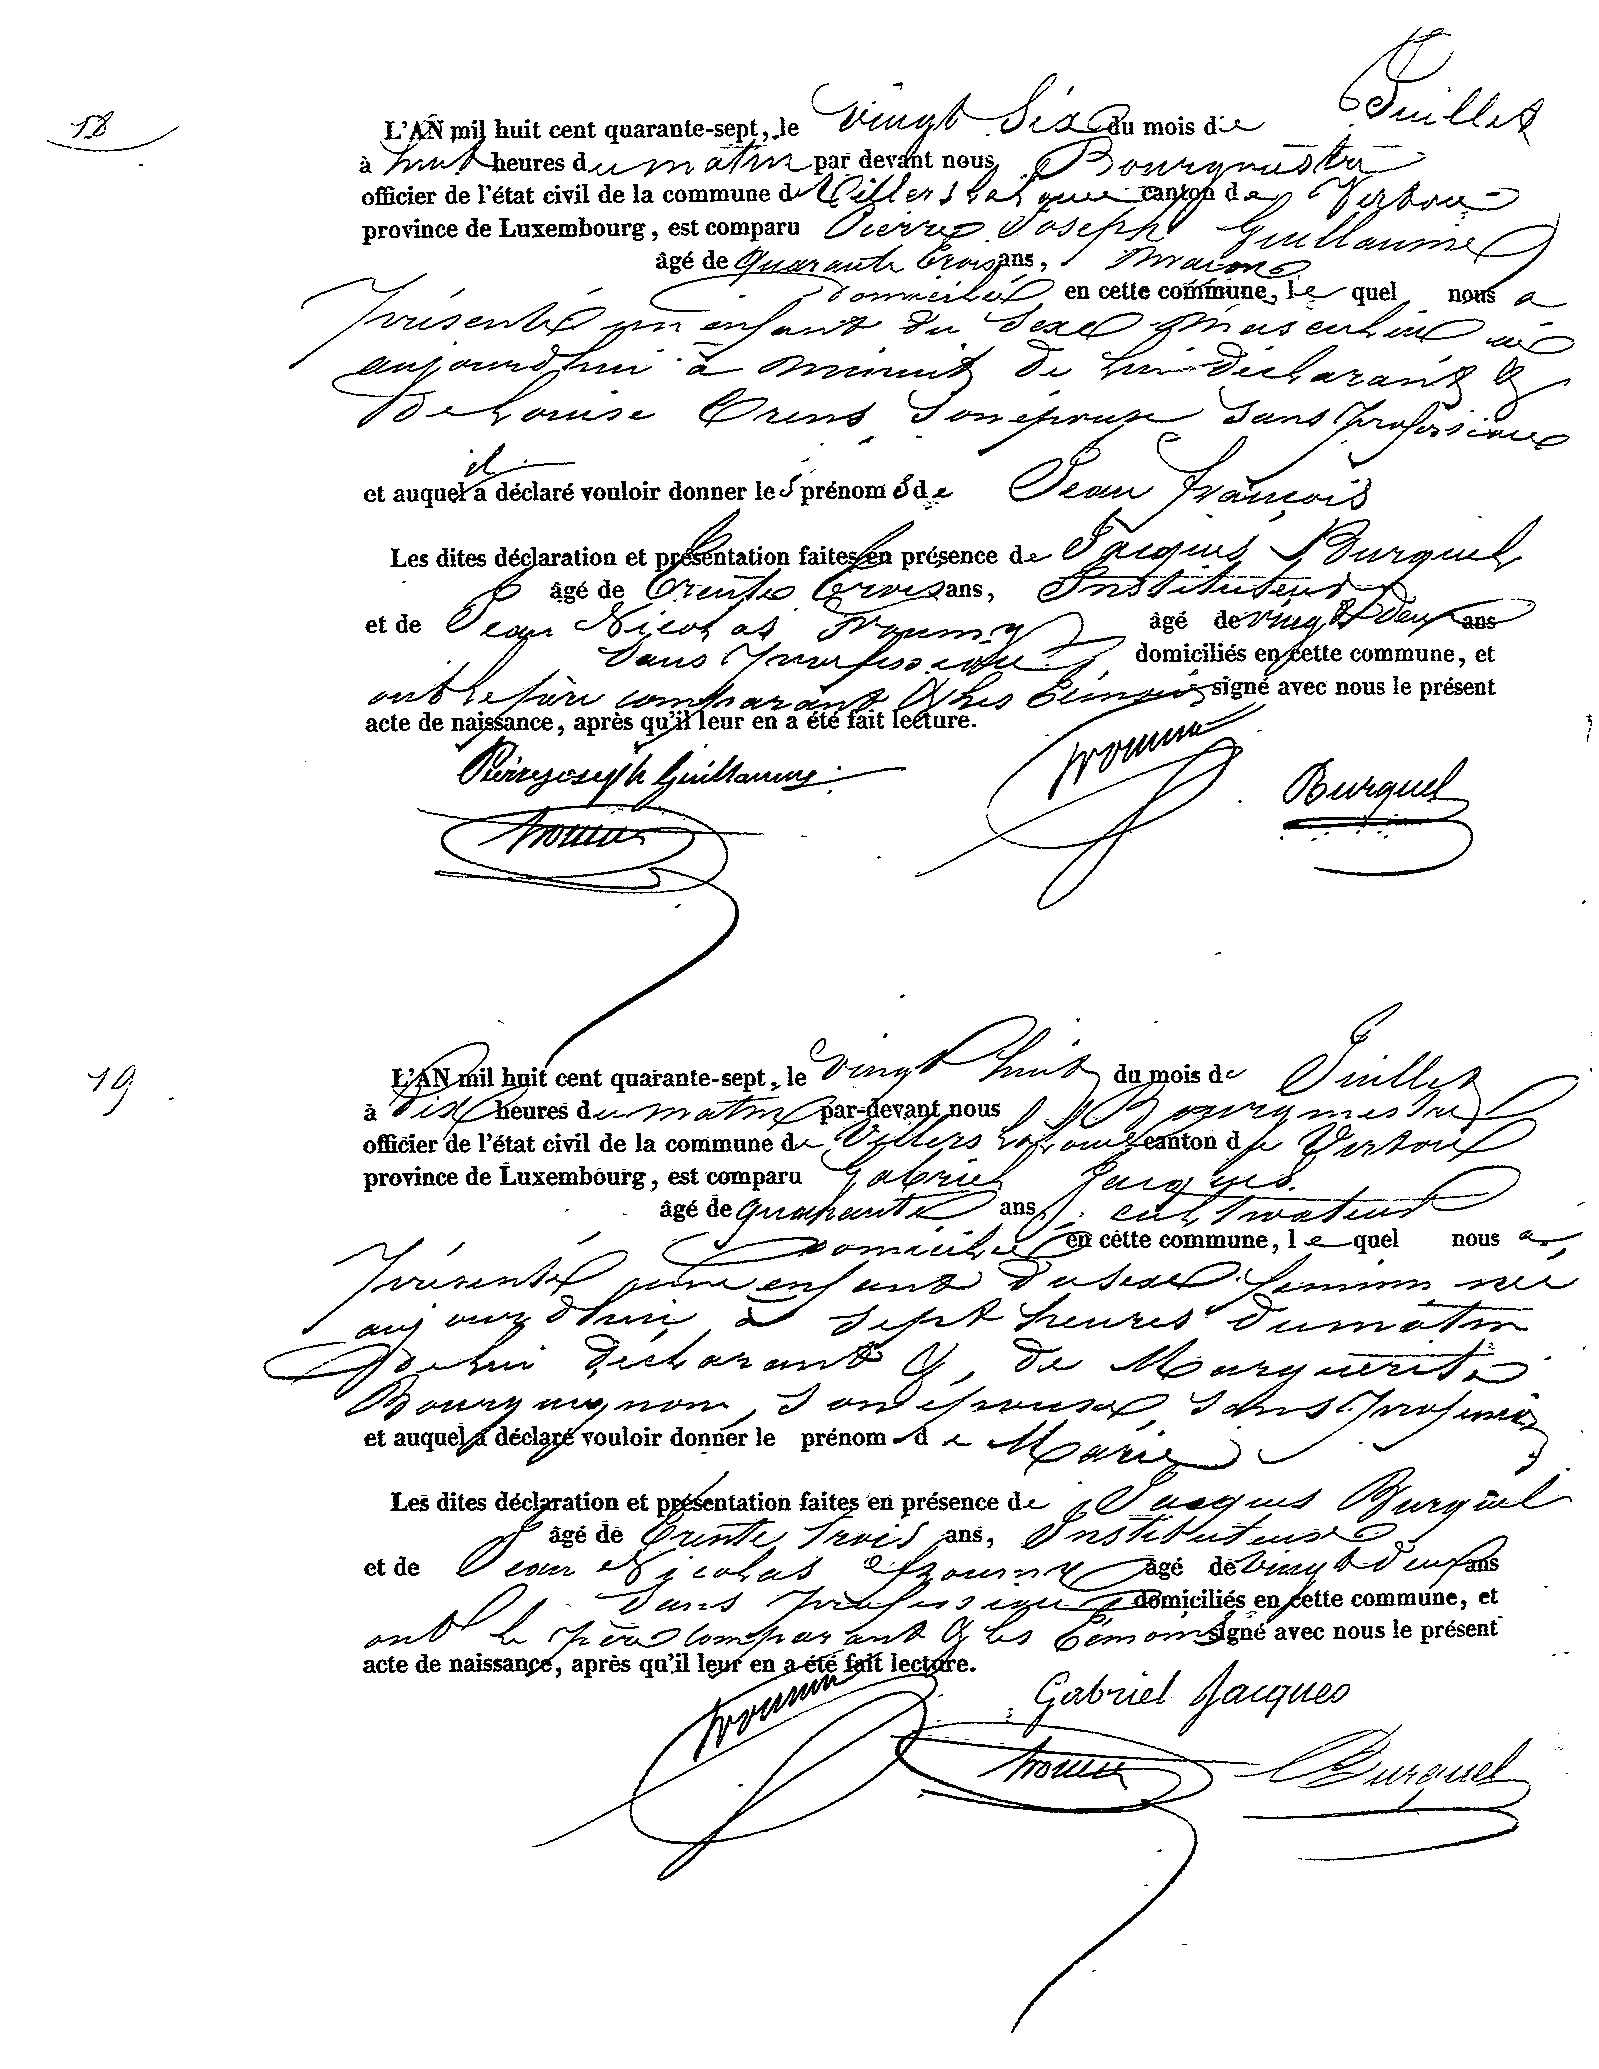 18
L'AN mil huit cent quarante-sept, le vingt Six du mois de Juillet
à huit heures du matin par devant nous Bourgmestre
officier de l'état civil de la commune de Villers la loue canton de Virton
province de Luxembourg, est comparu Pierre Joseph Guillaume
âgé de quarante trois ans, Maçon
domicilié en cette commune, le quel nous a
présenté un enfant du sexe Masculin né
aujourdhui à minuit de lui déclarant &
de Louise Crens son épouse sans profession
et auquel il a déclaré vouloir donner les prénoms de Jean François
Les dites déclaration et présentation faites en présence de Jacques Burquel
âgé de trente trois ans, Instituteur
et de Jean Nicolas âgé de vingt deux ans
sans profession domiciliés en cette commune, et
ont le père comparant & les témoins signé avec nous le présent
acte de naissance, après qu'il leur en a été fait lecture.
Pierre joseph Guillaume
Burquel
19
L'AN mil huit cent quarante-sept, le vingt huit du mois de Juillet
à Dix heures du matin par-devant nous Bourgmestre
officier de l'état civil de la commune de Villers la loue canton de Virton
province de Luxembourg, est comparu Gabriel Jacques
âgé de quarante ans, cultivateur
domicilié en cette commune, le quel nous a
présenté une enfant du sexe féminin née
aujourdhui à sept heures du matin
de lui déclarant & de Marguerite
Bourguignon, son épouse, sans profession
et auquel a déclaré vouloir donner le prénom de Marie
Les dites déclaration et présentation faites en présence de Jacques Burquel
âgé de trente trois ans, Instituteur
et de Jean Nicolas âgé de vingt deux ans
sans profession domiciliés en cette commune, et
ont le père comparant & les témoins signé avec nous le présent
acte de naissance, après qu'il leur en a été fait lecture.
Gabriel Jacques
Burquel